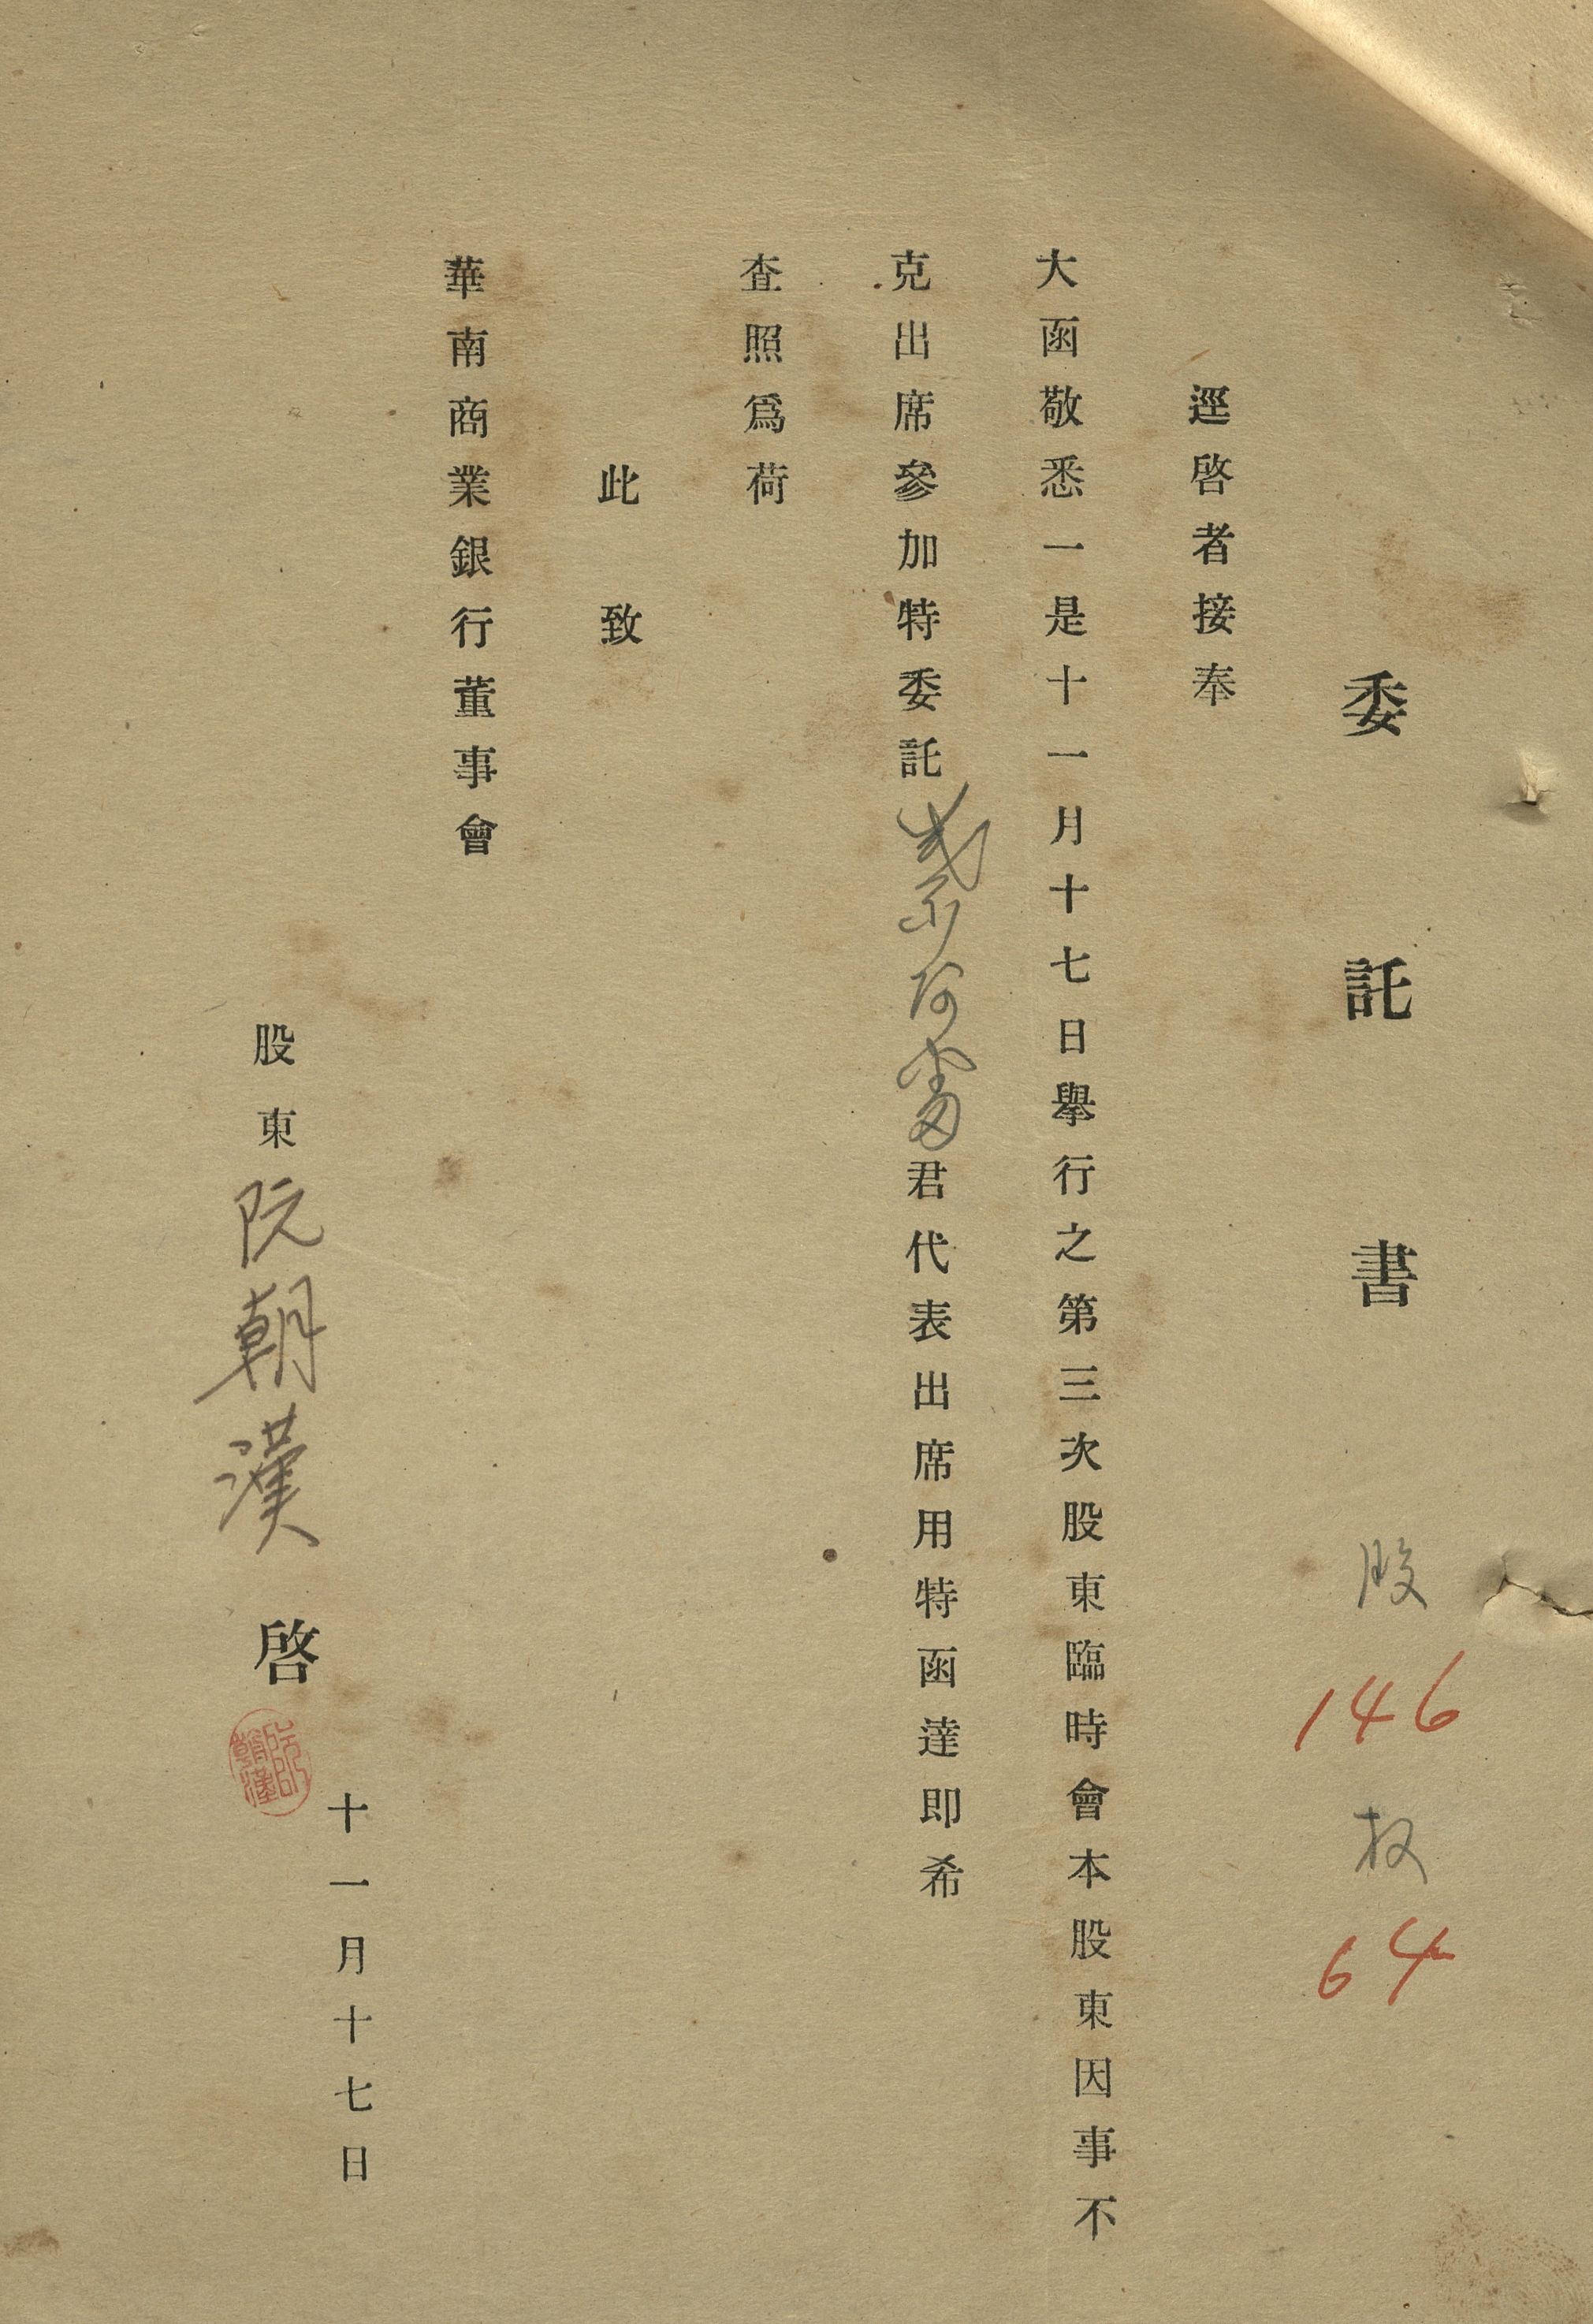 委託書 股 146 权 64
逕啓者接奉
大函敬悉一是十一月十七日舉行之第三次股東臨時會本股東因事不
克出席參加特委託 阿 君代表出席用特函達即希
查照爲荷
此致
華南商業銀行董事會
十一月十七日
股東 阮朝漢 啓